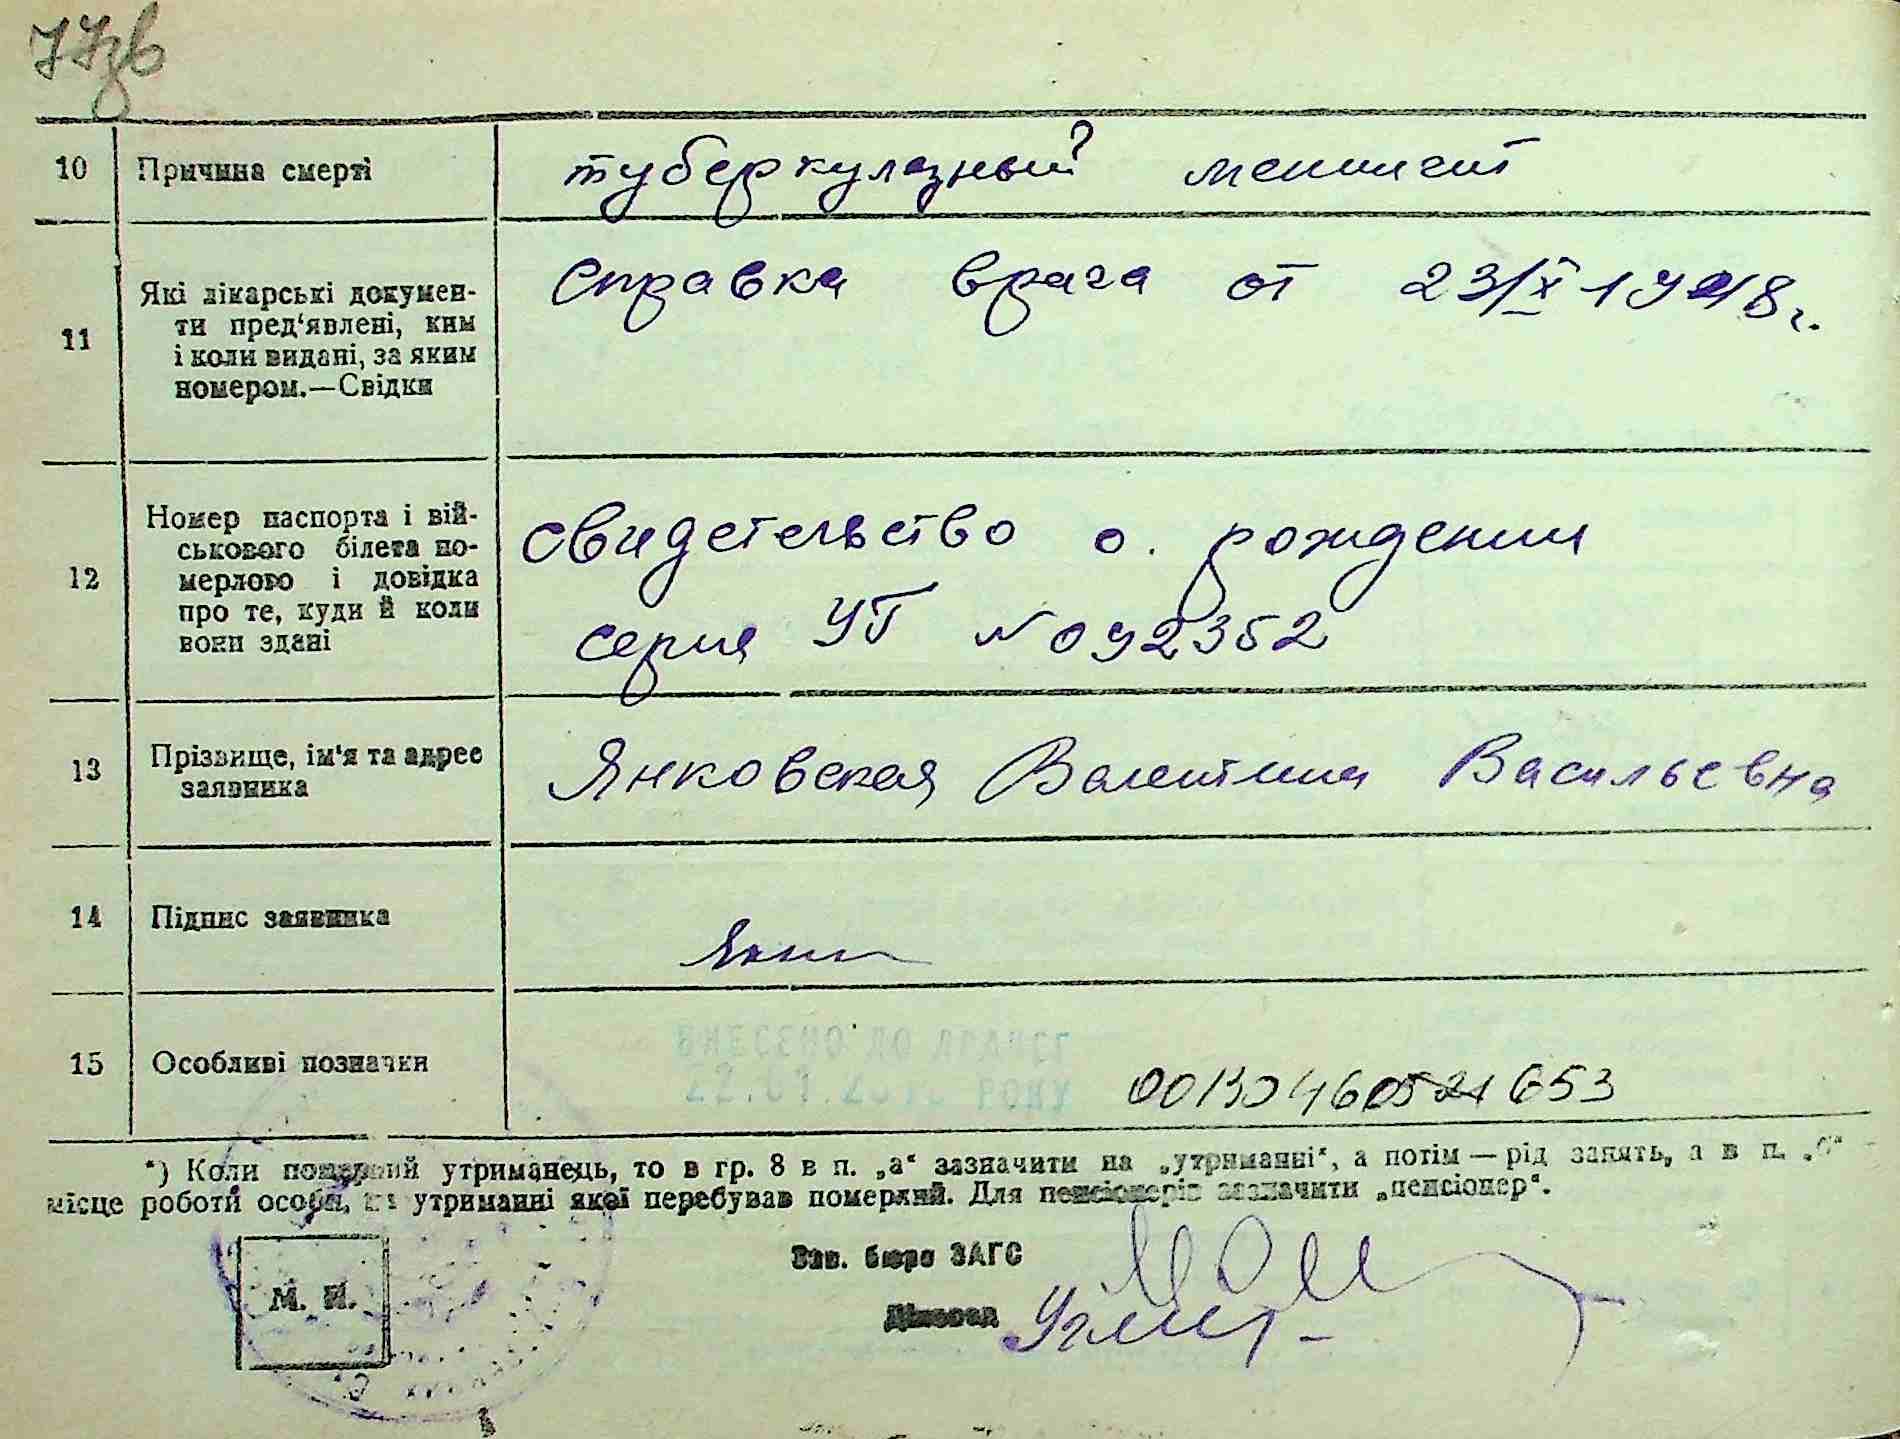 77зв
10 Причина смерті туберкулезный менингит
11 Які лікарські докумен-
ти пред‘явлені, ким
і коли видані, за яким
номером.—Свідки
Справка врача от 23/X 1948 г.
12 Номер паспорта і вій-
ськового білета по-
мерлого і довідка
про те, куди й коли
вони здані
свидетельство о. рождении
серия УГ № 092352
13 Прізвище, ім‘я та адрес
заявника
Янковская Валентина Васильевна
14 Підпис заявника
15 Особливі позначки
ВНЕСЕНО ДО ДРАЦСГ
РОКУ
653
*) Коли померлий утриманець, то в гр. 8 в п. „а“ зазначити на „утриманні“, а потім — рід занять, а в п. „б“
місце роботи особи, на утриманні якої перебував померлий. Для пенсіонерів зазначити „пенсіонер“.
Зав. бюро ЗАГС
М. П.
Діловод